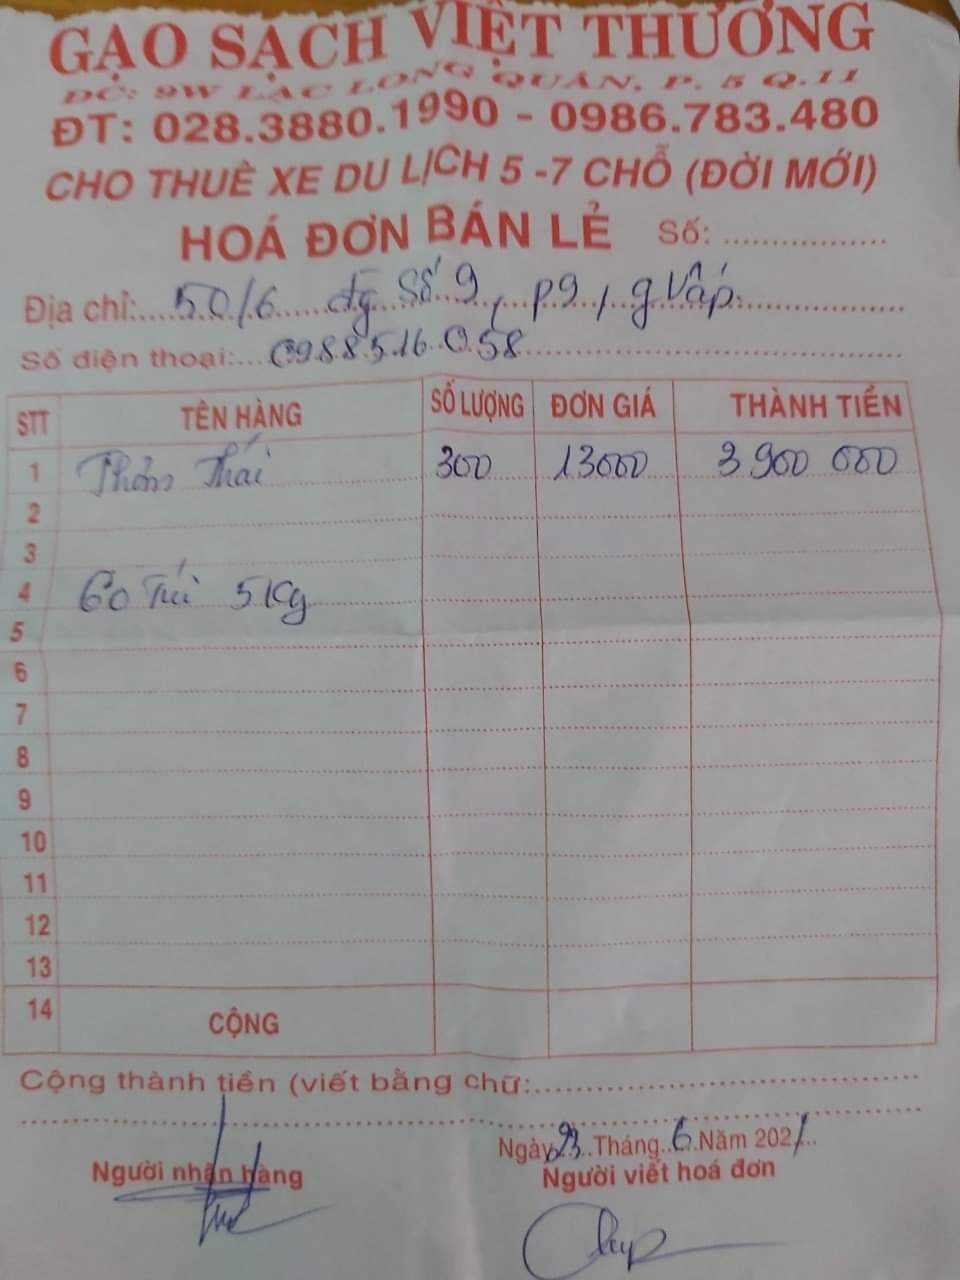 GẠO SẠCH VIỆT THƯƠNG
ĐC: 9W LẠC LONG QUÂN, P. 5 Q.11
ĐT: 028.3880.1990 - 0986.783.480
CHO THUÊ XE DU LỊCH 5 -7 CHỖ (ĐỜI MỚI)
HOÁ ĐƠN BÁN LẺ Số: ................
Địa chỉ: 50/6 đg Số 9, p9, g Vấp.
Số điện thoại: 0988516058
STT TÊN HÀNG SỐ LƯỢNG ĐƠN GIÁ THÀNH TIỀN
1 Thơm Thái 300 13000 3 900 000
2
3
4 60 Túi 5 Kg
5
6
7
8
9
10
11
12
13
14 CỘNG
Cộng thành tiền (viết bằng chữ:
Ngày 23 Tháng 6 Năm 2021
Người nhận hàng Người viết hoá đơn